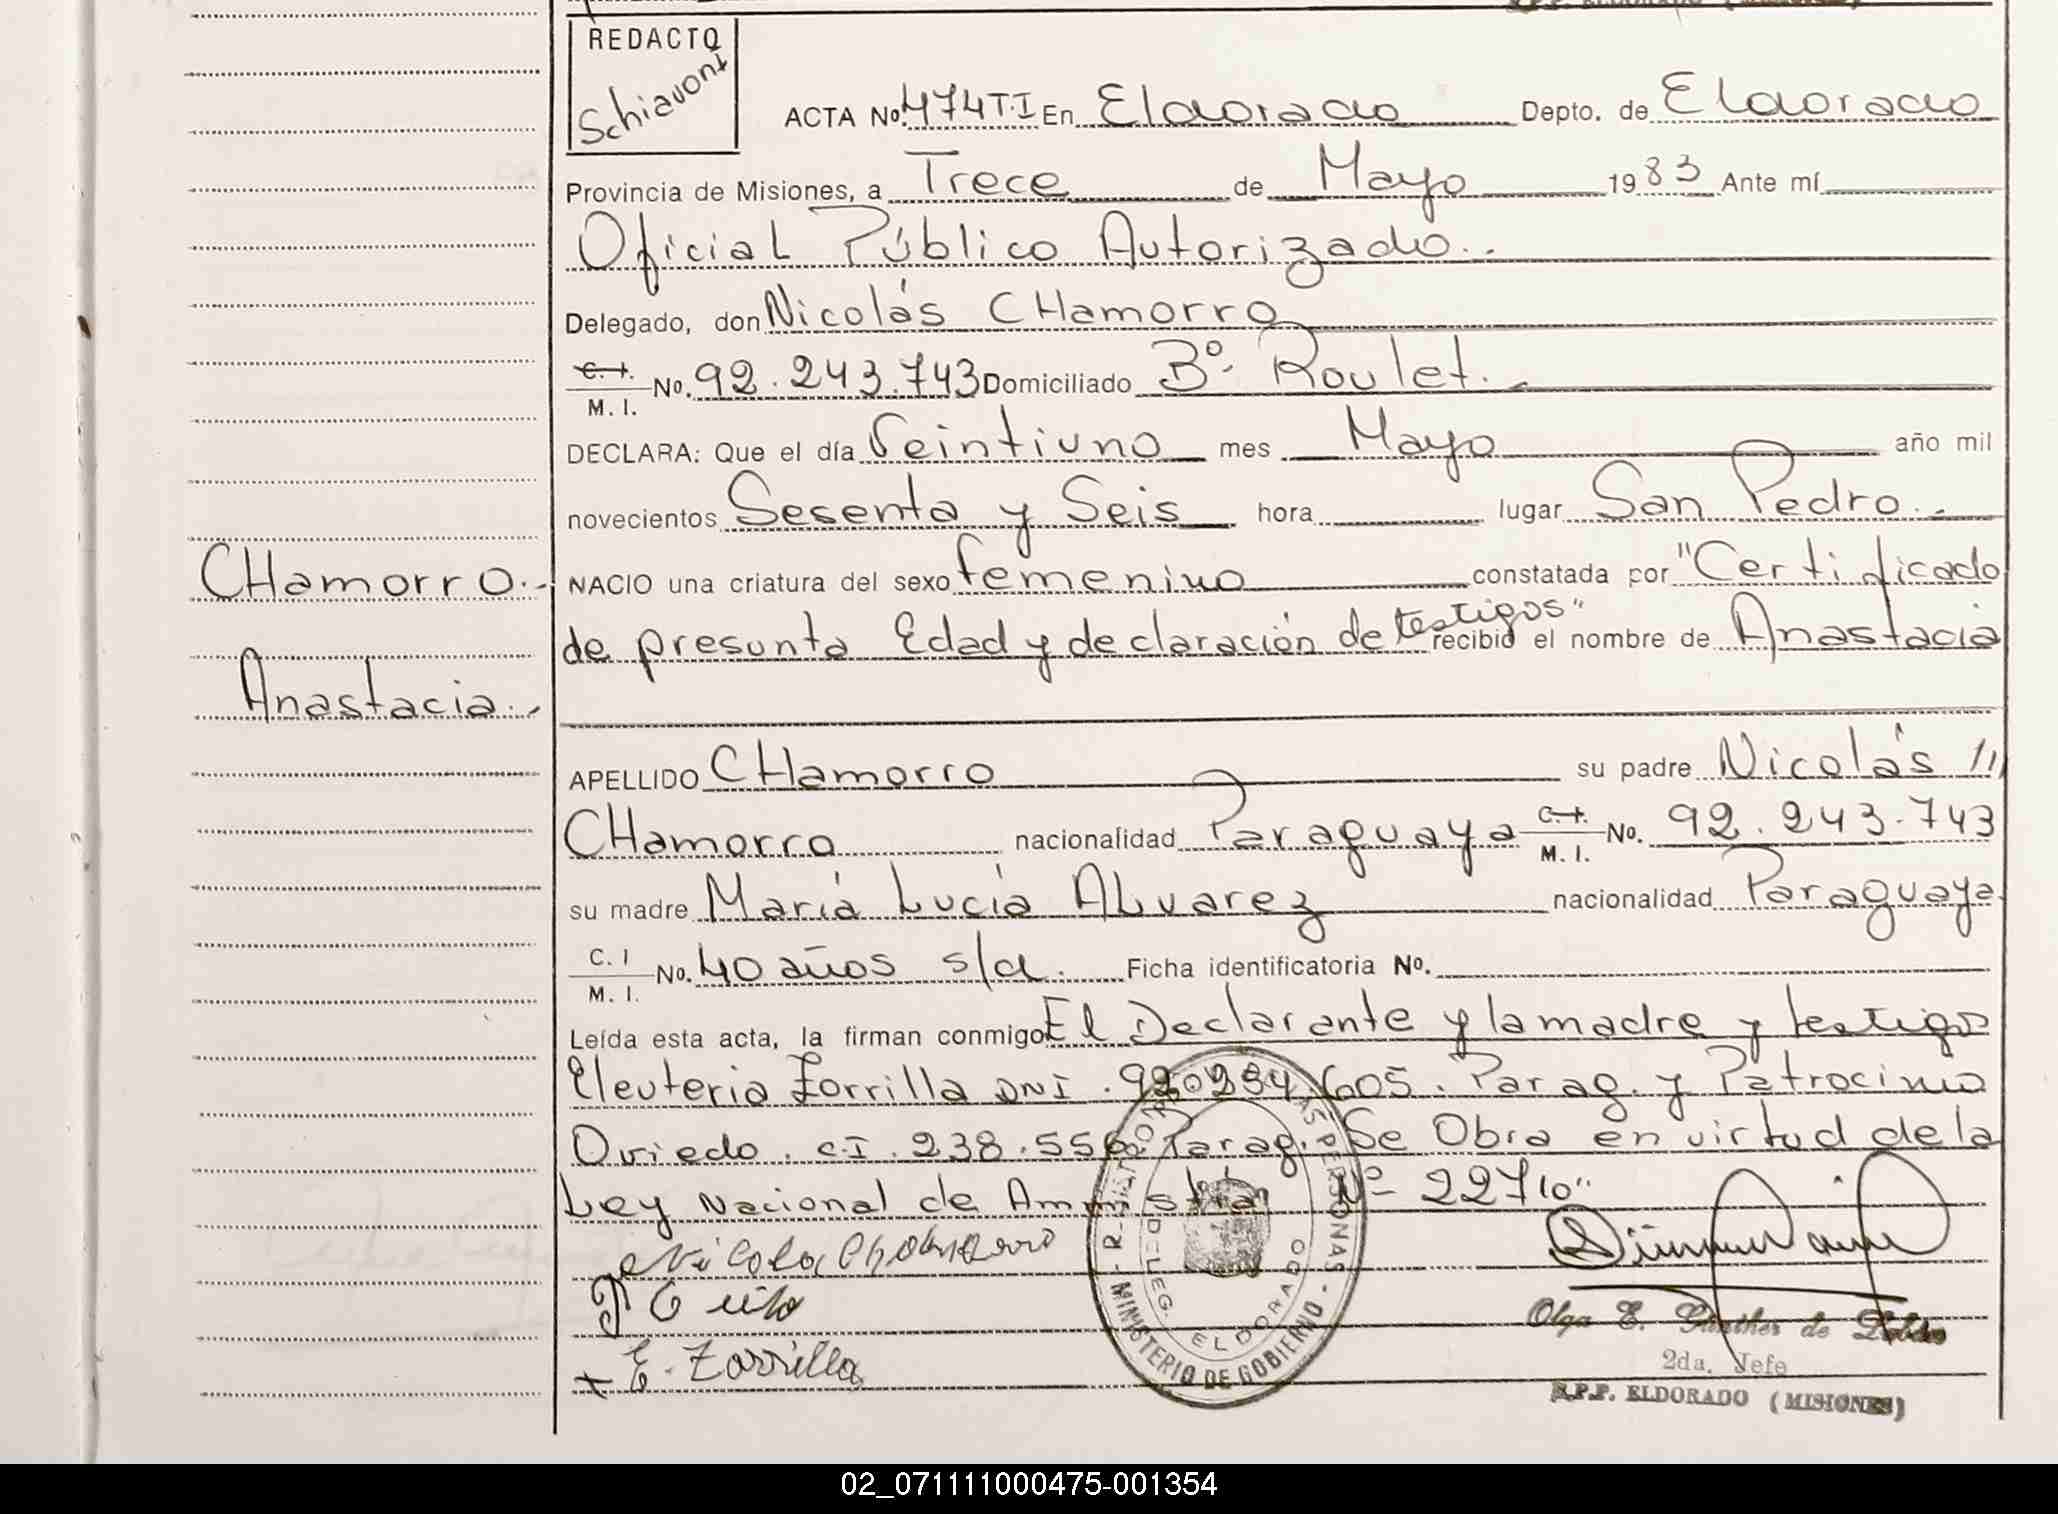 REDACTO
Schiavoni
ACTA No. 474 T.I En Eldorado Depto. de Eldorado
Provincia de Misiones, a Trece de Mayo 1983 Ante mí
Oficial Público Autorizado.
Delegado, don Nicolás CHamorro
C.I. M. I. No. 92.243.743 Domiciliado Bº. Roulet.
DECLARA: Que el día Veintiuno mes Mayo año mil
novecientos Sesenta y Seis hora lugar San Pedro.
CHamorro. NACIO una criatura del sexo femenino constatada por "Certificado
de presunta Edad y declaración de testigos" recibió el nombre de Anastacia
Anastacia.
APELLIDO CHamorro su padre Nicolás //
CHamorro nacionalidad Paraguaya C.I. M. I. No. 92.243.743
su madre María Lucía ALvarez nacionalidad Paraguaya
C. I M. I. No. 40 años s/d. Ficha identificatoria No.
Leída esta acta, la firman conmigo El Declarante y la madre y testigo
Eleuteria Zorrilla DNI. Parag. y Patrocinio
Oviedo. C.I. 238.556 Parag. Se Obra en virtud de la
Ley Nacional de Amnistia Nº 22710"
Nicola Chamorro
E. Zorrilla
MINISTERIO DE GOBIERNO
DELEG. ELDORADO
Olga E. Günther de
2da. Jefe
R.P.P. ELDORADO (MISIONES)
02_071111000475-001354